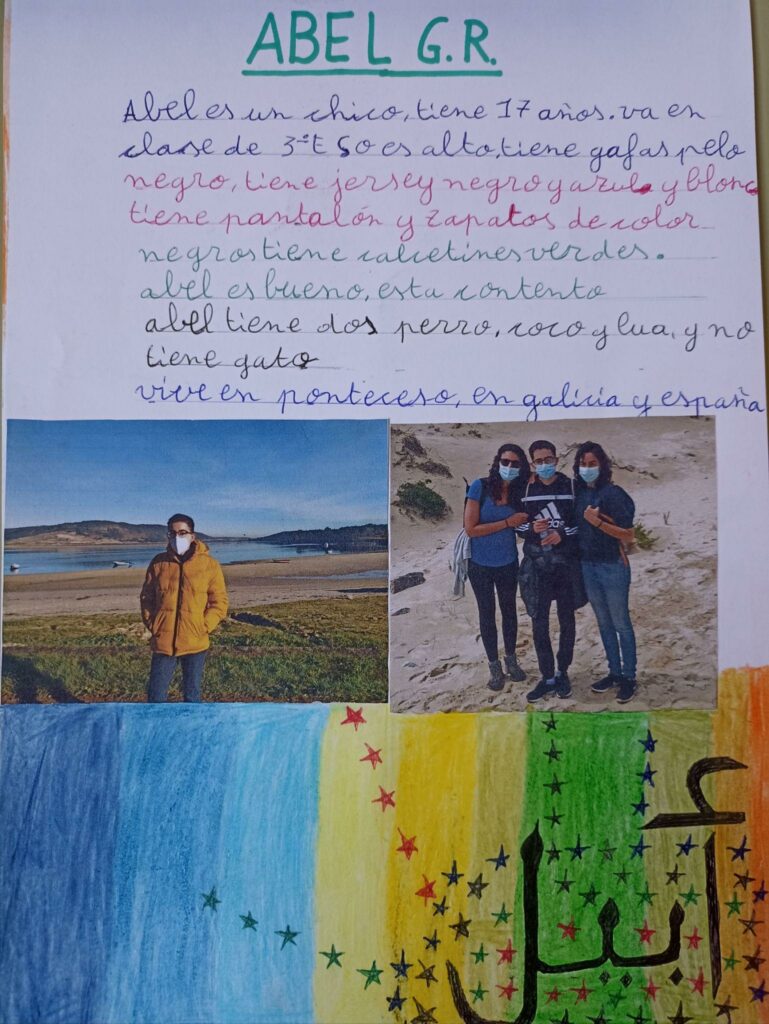 ABEL G.R.
Abel es un chico, tiene 17 años. va en
clase de 3ºESO es alto, tiene gafas pelo
negro, tiene jersey negro y azul y blanc
tiene pantalón y zapatos de color
negros tiene calcetines verdes.
abel es bueno, esta contento
abel tiene dos perro, coco y lua, y no
tiene gato
vive en ponteceso, en galicia y españa
adidas
أبيل